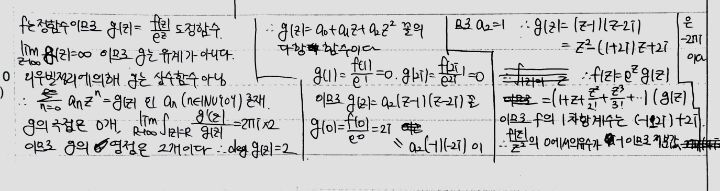 f는 정함수이므로 g(z) = f(z)/e^z 도 정함수.
lim_{z→∞} g(z)=∞ 이므로 g는 유계가 아니다.
리우빌정리에의해 g는 상수함수 아님
∴ Σ_{n=0}^∞ a_n z^n = g(z) 인 a_n (n∈ℕ∪{0}) 존재.
g의 극점은 0개, lim_{R→∞} ∫_{|z|=R} g'(z)/g(z) = 2πi×2
이므로 g의 영점은 2개이다 ∴ deg g(z)=2
∴ g(z)=a_0+a_1z+a_2z^2 꼴의
다항함수이다
g(1)= f(1)/e^1=0. g(2i)= f(2i)/e^{2i}=0
이므로 g(z)=a_2(z-1)(z-2i) 꼴
g(0)= f(0)/e^0=2i
= a_2(-1)(-2i) 이
므로 a_2=1 ∴ g(z)=(z-1)(z-2i)
= z^2-(1+2i)z+2i
∴ f(z)=e^z g(z)
=(1+z+z^2/2!+z^3/3!+…)(g(z))
이므로 f의 1차항계수는 (-1-2i)+2i.
∴ f(z)/z^2의 0에서의 유수가 -1이므로
은
-2πi
이다